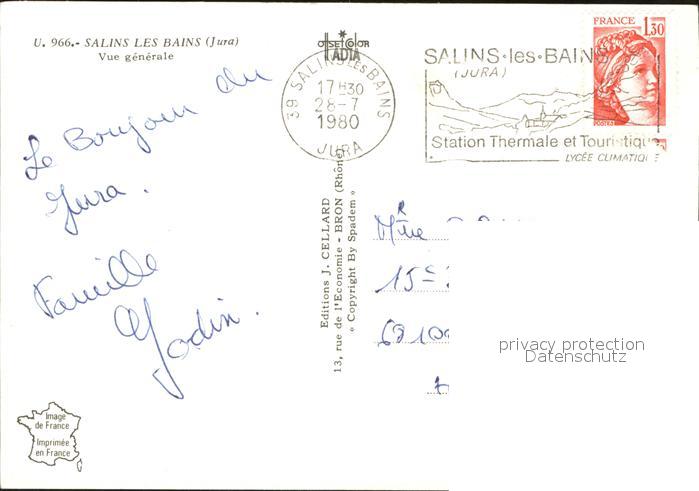 U. 966.- SALINS LES BAINS (Jura)
Vue générale
OFFSET COLOR
IADIA
39 SALINS LES BAINS
17H30
28-7
1980
JURA
SALINS·les·BAINS
(JURA)
Station Thermale et Touristique
LYCÉE CLIMATIQUE
FRANCE
1,30
POSTES
Le Bonjour du
Jura.
Famille
Jodin.
Editions J. CELLARD
13, rue de l'Economie - BRON (Rhône)
« Copyright By Spadem »
Mme
15
69100
privacy protection
Datenschutz
Image
de France
Imprimée
en France